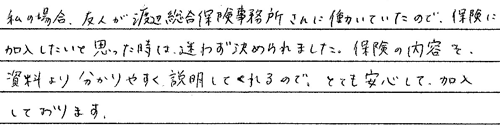 私の場合、友人が渡辺総合保険事務所さんに働いていたので、保険に
加入したいと思った時は、迷わず決められました。保険の内容を、
資料より分かりやすく、説明してくれるので、とても安心して、加入
しております。